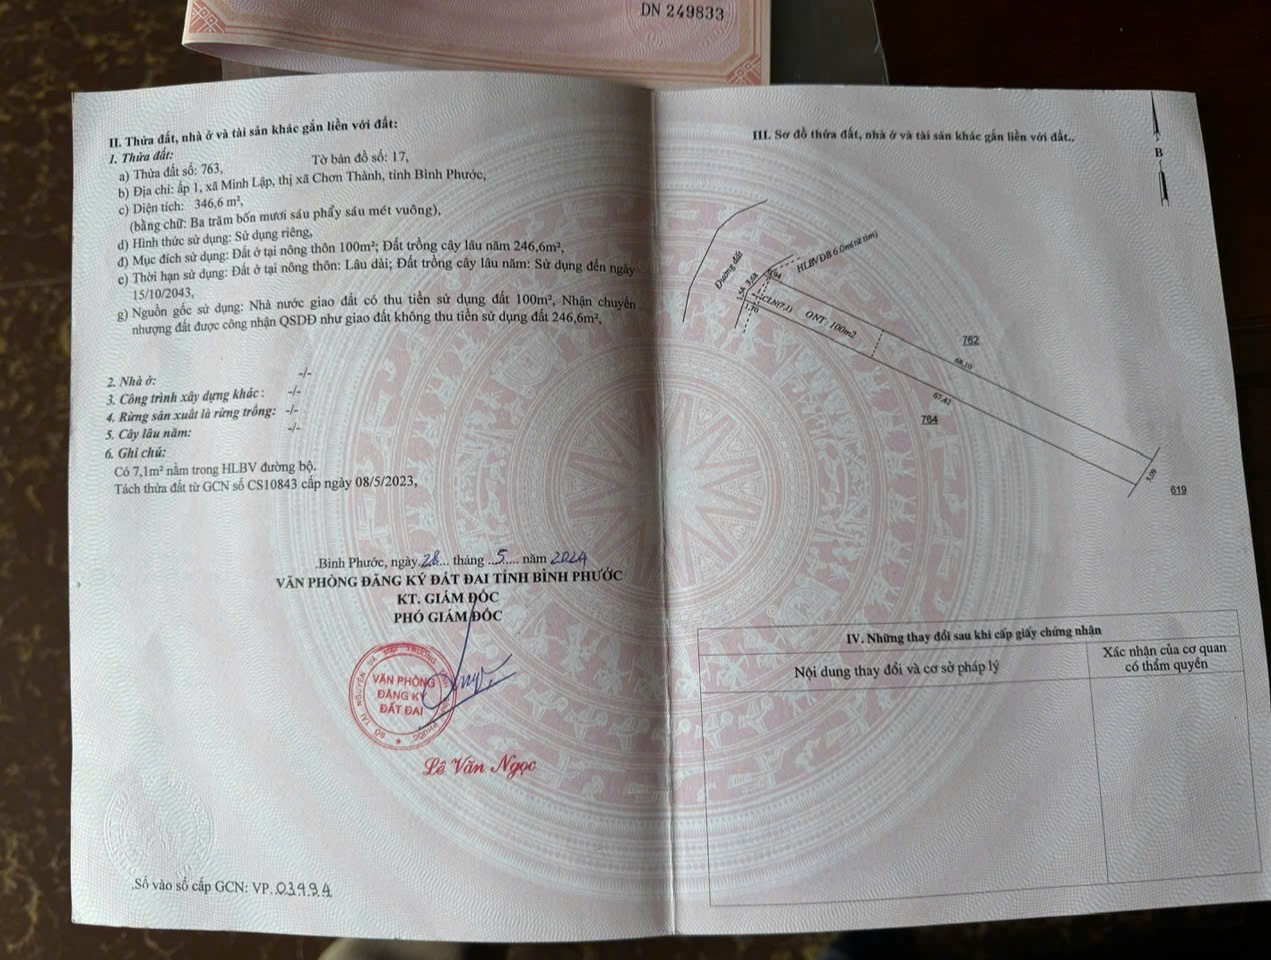 DN 249833
II. Thửa đất, nhà ở và tài sản khác gắn liền với đất:
1. Thửa đất:
a) Thửa đất số: 763, Tờ bản đồ số: 17,
b) Địa chỉ: ấp 1, xã Minh Lập, thị xã Chơn Thành, tỉnh Bình Phước,
c) Diện tích: 346,6 m²,
(bằng chữ: Ba trăm bốn mươi sáu phẩy sáu mét vuông),
d) Hình thức sử dụng: Sử dụng riêng,
đ) Mục đích sử dụng: Đất ở tại nông thôn 100m²; Đất trồng cây lâu năm 246,6m²,
e) Thời hạn sử dụng: Đất ở tại nông thôn: Lâu dài; Đất trồng cây lâu năm: Sử dụng đến ngày
15/10/2043,
g) Nguồn gốc sử dụng: Nhà nước giao đất có thu tiền sử dụng đất 100m², Nhận chuyển
nhượng đất được công nhận QSDĐ như giao đất không thu tiền sử dụng đất 246,6m²,
2. Nhà ở: -/-
3. Công trình xây dựng khác: -/-
4. Rừng sản xuất là rừng trồng: -/-
5. Cây lâu năm: -/-
6. Ghi chú:
Có 7,1m² nằm trong HLBV đường bộ.
Tách thửa đất từ GCN số CS10843 cấp ngày 08/5/2023,
.Bình Phước, ngày.28... tháng ..5.... năm 2024
VĂN PHÒNG ĐĂNG KÝ ĐẤT ĐAI TỈNH BÌNH PHƯỚC
KT. GIÁM ĐỐC
PHÓ GIÁM ĐỐC
VĂN PHÒNG
ĐĂNG KÝ
ĐẤT ĐAI
Lê Văn Ngọc
.Số vào sổ cấp GCN: VP..03994
III. Sơ đồ thửa đất, nhà ở và tài sản khác gắn liền với đất..
B
Đường đất
HLBVĐB 6.0m(từ tim)
1,54
3,68
CLN(7,1)
ONT: 100m2
762
68,10
67,42
764
5,09
619
IV. Những thay đổi sau khi cấp giấy chứng nhận
Nội dung thay đổi và cơ sở pháp lý
Xác nhận của cơ quan
có thẩm quyền